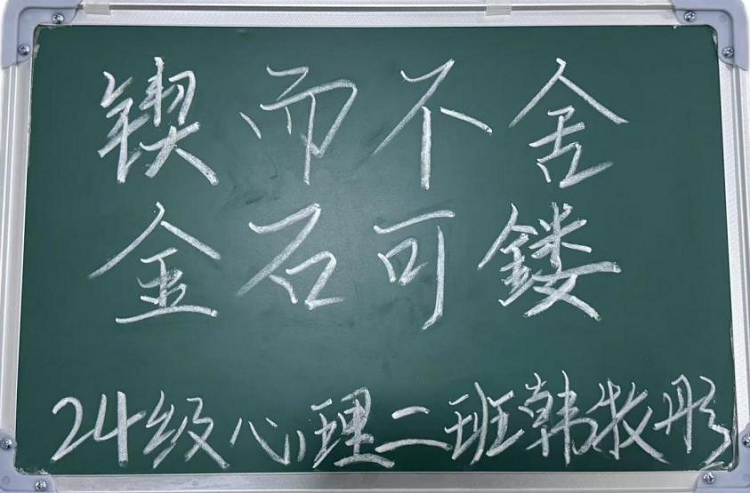 锲而不舍
金石可镂
24级心理二班韩牧彤